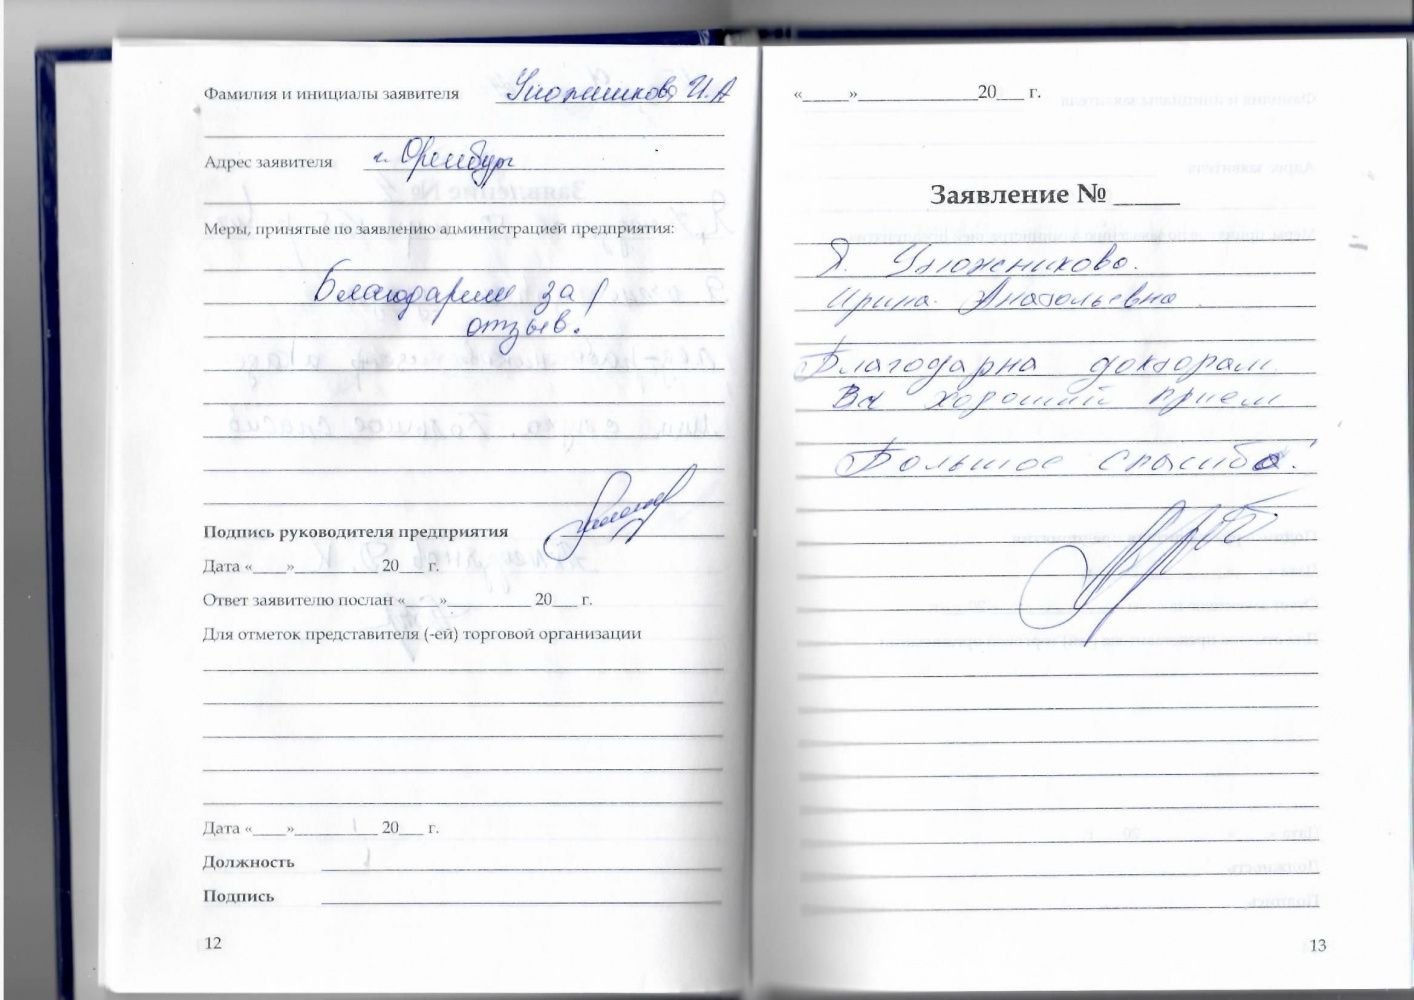 Фамилия и инициалы заявителя И.А
Адрес заявителя г. Оренбург
Меры, принятые по заявлению администрацией предприятия:
Благодарим за
отзыв.
Подпись руководителя предприятия
Дата «____»__________ 20___ г.
Ответ заявителю послан «____»__________ 20___ г.
Для отметок представителя (-ей) торговой организации
Дата «____»__________ 20___ г.
Должность
Подпись
12
«_____»_____________20___ г.
Заявление № _____
Я.
Ирина Анатольевна
Благодарна докторам
За хороший прием
Большое спасибо.
13